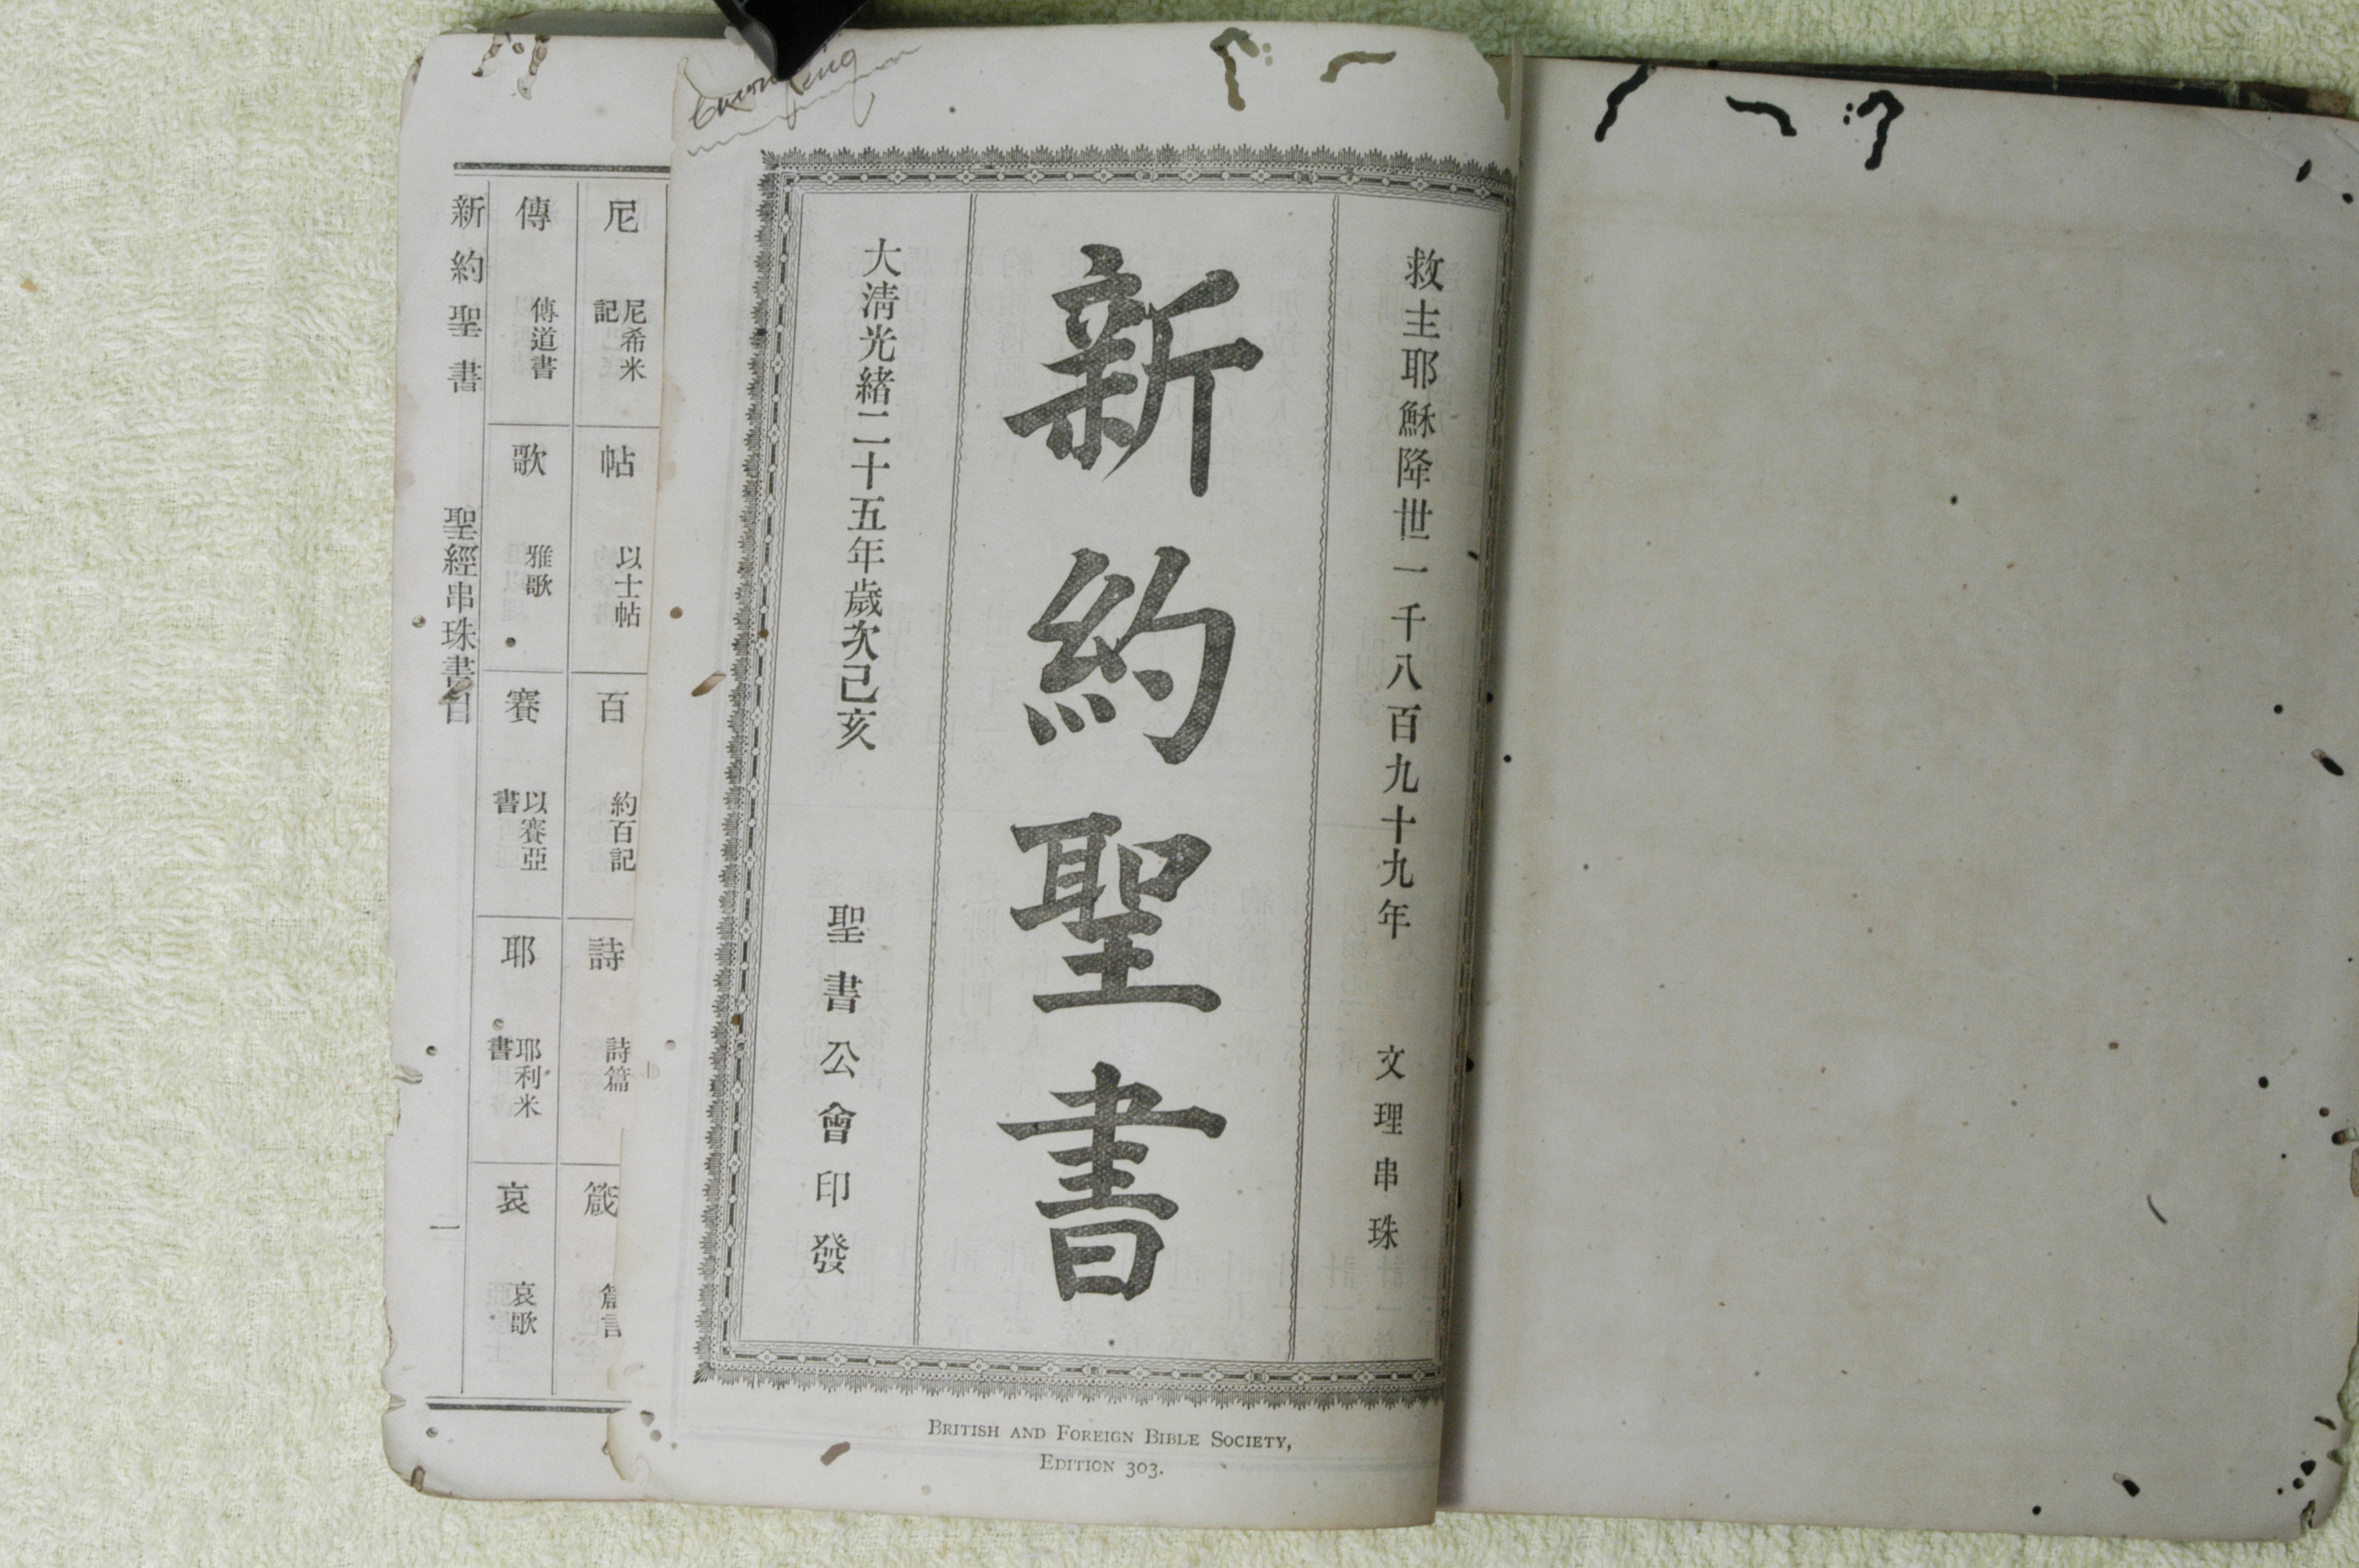 救主耶穌降世一千八百九十九年 文理串珠
新約聖書
大淸光緒二十五年歲次己亥 聖書公會印發
BRITISH AND FOREIGN BIBLE SOCIETY,
EDITION 303.
尼 尼希米記
帖 以士帖
百 約百記
詩 詩篇
箴 箴言
傳 傳道書
歌 雅歌
賽 以賽亞書
耶 耶利米書
哀 哀歌
新約聖書 聖經串珠書目 一